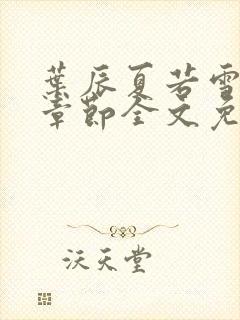 葉辰夏若雪
章節全文免
沃天堂